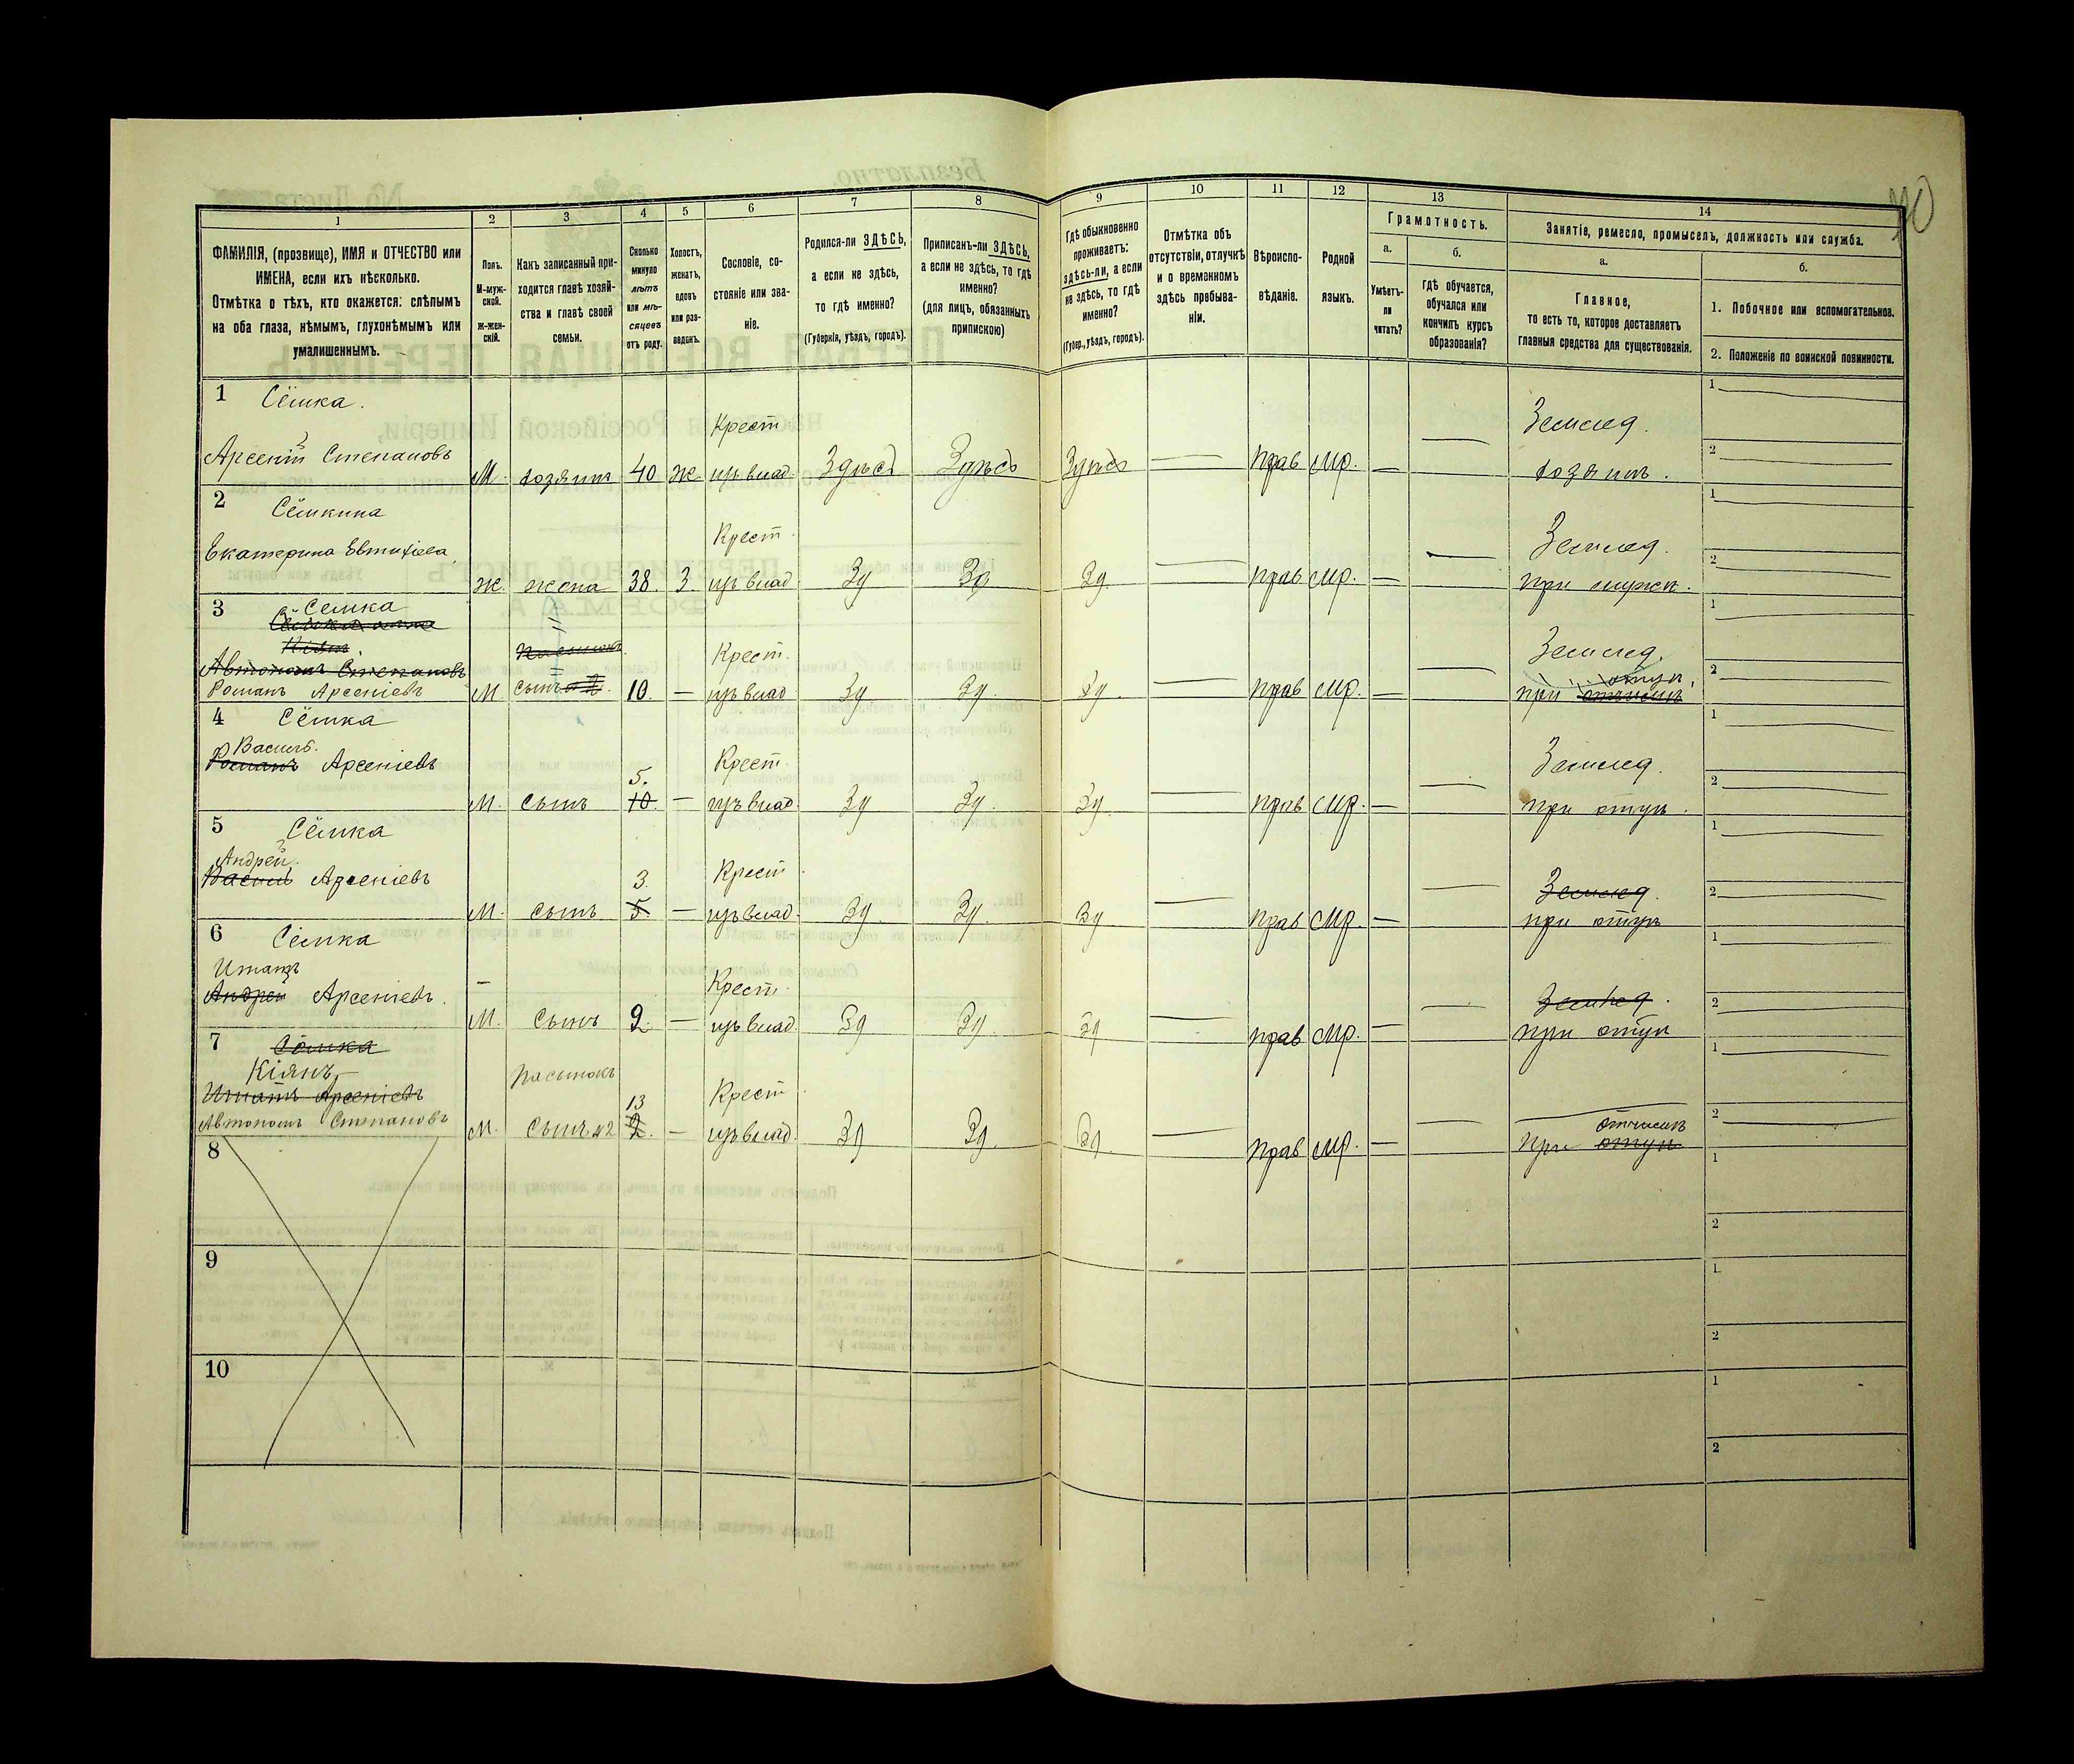 70
1
2
3
4
5
6
7
8
9
10
11
12
13
14
ФАМИЛІЯ, (прозвище), ИМЯ и ОТЧЕСТВО или
ИМЕНА, если ихъ нѣсколько.
Отмѣтка о тѣхъ, кто окажется: слѣпымъ
на оба глаза, нѣмымъ, глухонѣмымъ или
умалишеннымъ.
Полъ.
М-муж-
ской.
ж-жен-
скій.
Какъ записанный при-
ходится главѣ хозяй-
ства и главѣ своей
семьи.
Сколько
минуло
лѣтъ
или мѣ-
сяцевъ
отъ роду.
Холостъ,
женатъ,
вдовъ
или раз-
веденъ.
Сословіе, со-
стояніе или зва-
ніе.
Родился-ли ЗДѢСЬ,
а если не здѣсь,
то гдѣ именно?
(Губернія, уѣздъ, городъ).
Приписанъ-ли ЗДѢСЬ,
а если не здѣсь, то гдѣ
именно?
(для лицъ, обязанныхъ
припискою)
Гдѣ обыкновенно
проживаетъ:
здѣсь-ли, а если
не здѣсь, то гдѣ
именно?
(Губер., уѣздъ, городъ).
Отмѣтка объ
отсутствіи, отлучкѣ
и о временномъ
здѣсь пребыва-
ніи.
Вѣроиспо-
вѣданіе.
Родной
языкъ.
Грамотность.
а.
Умѣетъ-
ли
читать?
б.
гдѣ обучается,
обучался или
кончилъ курсъ
образованія?
Занятіе, ремесло, промыселъ, должность или служба.
а.
Главное,
то есть то, которое доставляетъ
главныя средства для существованія.
б.
1. Побочное или вспомогательное.
2. Положеніе по воинской повинности.
1 Сёмка.
Крест. Землед.
Арсеній Степановъ М. хозяинъ 40 Ж из влад. Здѣсь Здѣсь Здѣсь — Прав Мр. — — хозяинъ.
2 Сёмкина
Крест. Землед.
Екатерина Евтихіева Ж. жена 38. З. из влад. Зд Зд Зд. — прав Мр. — — при мужѣ.
3 Семка
Кіянъ Пасынокъ Крест. Землед.
Автономъ Степановъ отцѣ,
Романъ Арсеніевъ М. сынъ 10. — из влад Зд Зд. Зд. — прав Мр. — — при отчимѣ
4 Сёмка
Василь. Крест. Землед.
Романъ Арсеніевъ 5.
М. сынъ 10. — из влад. Зд Зд. Зд. — прав Мр. — — при отцѣ.
5 Сёмка
Андрей. 3. Крест. Землед.
Василь Арсеніевъ
М. сынъ 5 — из влад. Зд. Зд. Зд — прав Мр. — — при отцѣ
6 Сёмка
Игнатъ Крест. Землед.
Андрей Арсеніевъ.
М. Сынъ 2 — из влад. Зд Зд. Зд — прав Мр. — — при отцѣ
7 Сёмка
Кіянъ, Пасынокъ Крест.
Игнатъ Арсеніевъ 13 отчимѣ
Автономъ Степановъ М. Сынъ 42 2. — из влад. Зд Зд. Зд. — прав Мр. — — При отцѣ
8
9
10